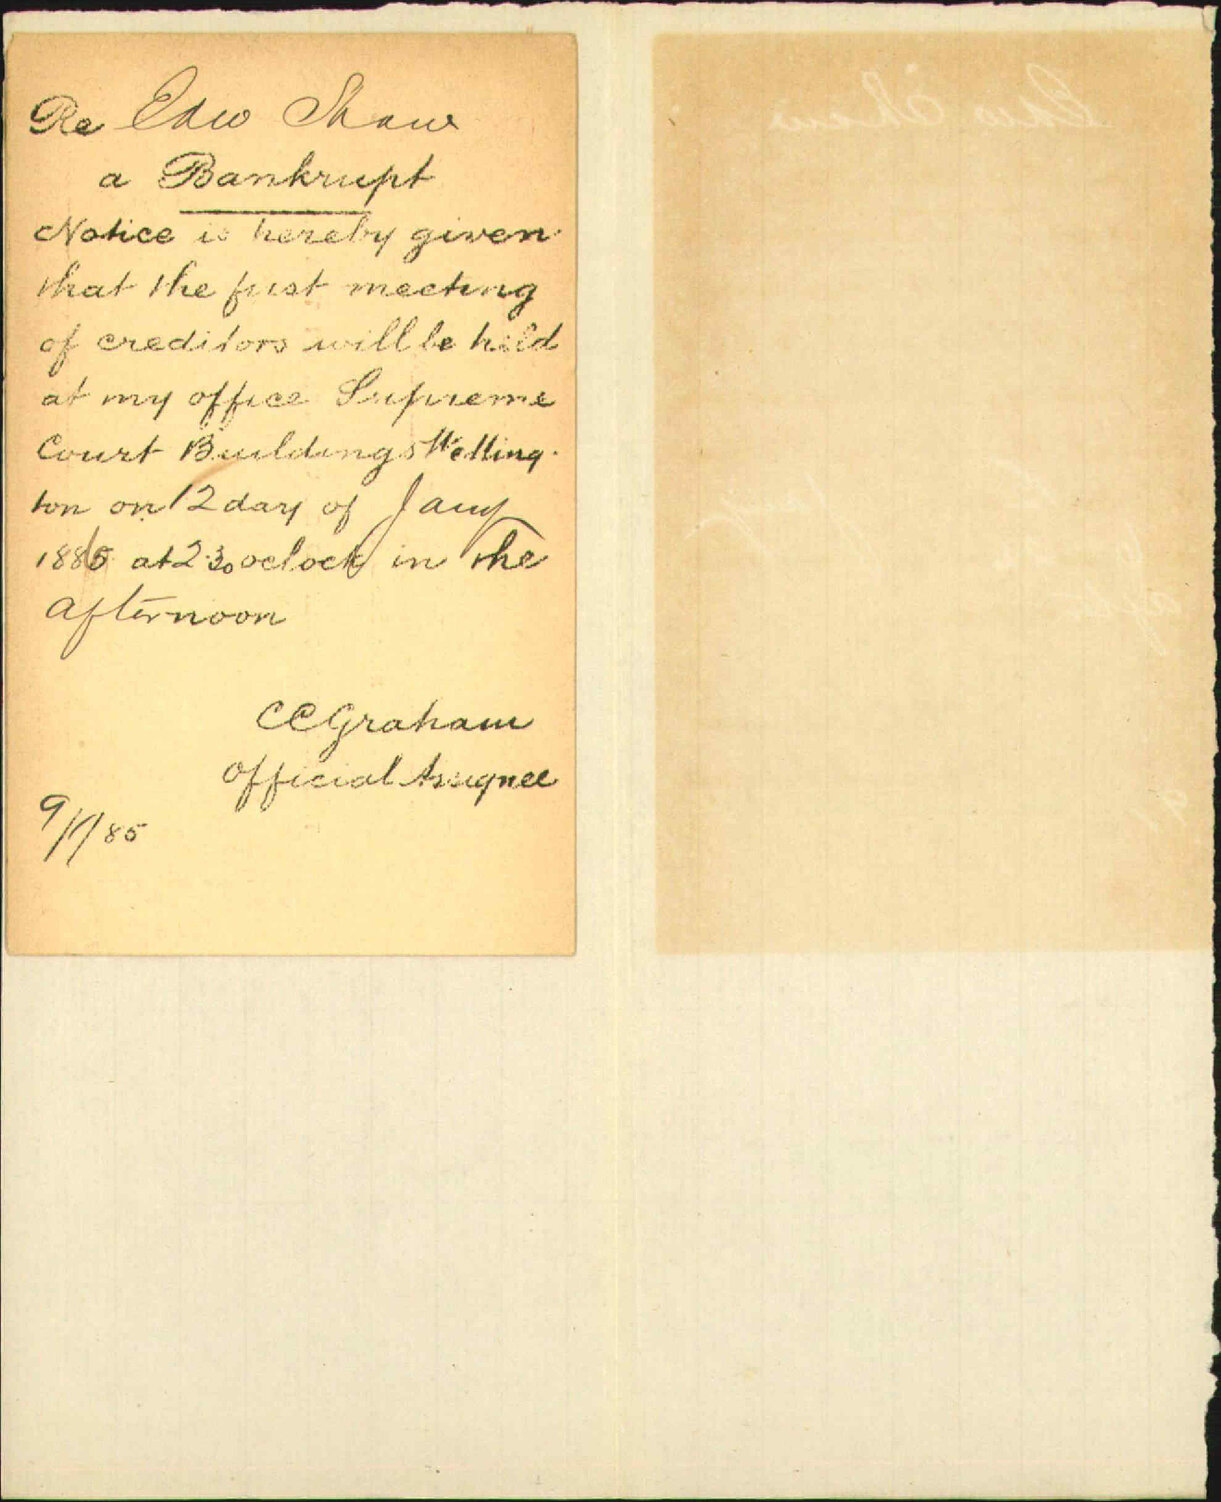 Re Edw Shaw
a Bankrupt
Notice is hereby given
that the first meeting
of creditors will be held
at my office Supreme
Court Buildings Welling-
ton on 12 day of Jany
1885 at 2.30 oclock in the
afternoon
CCGraham
Official Assignee
9/1/85